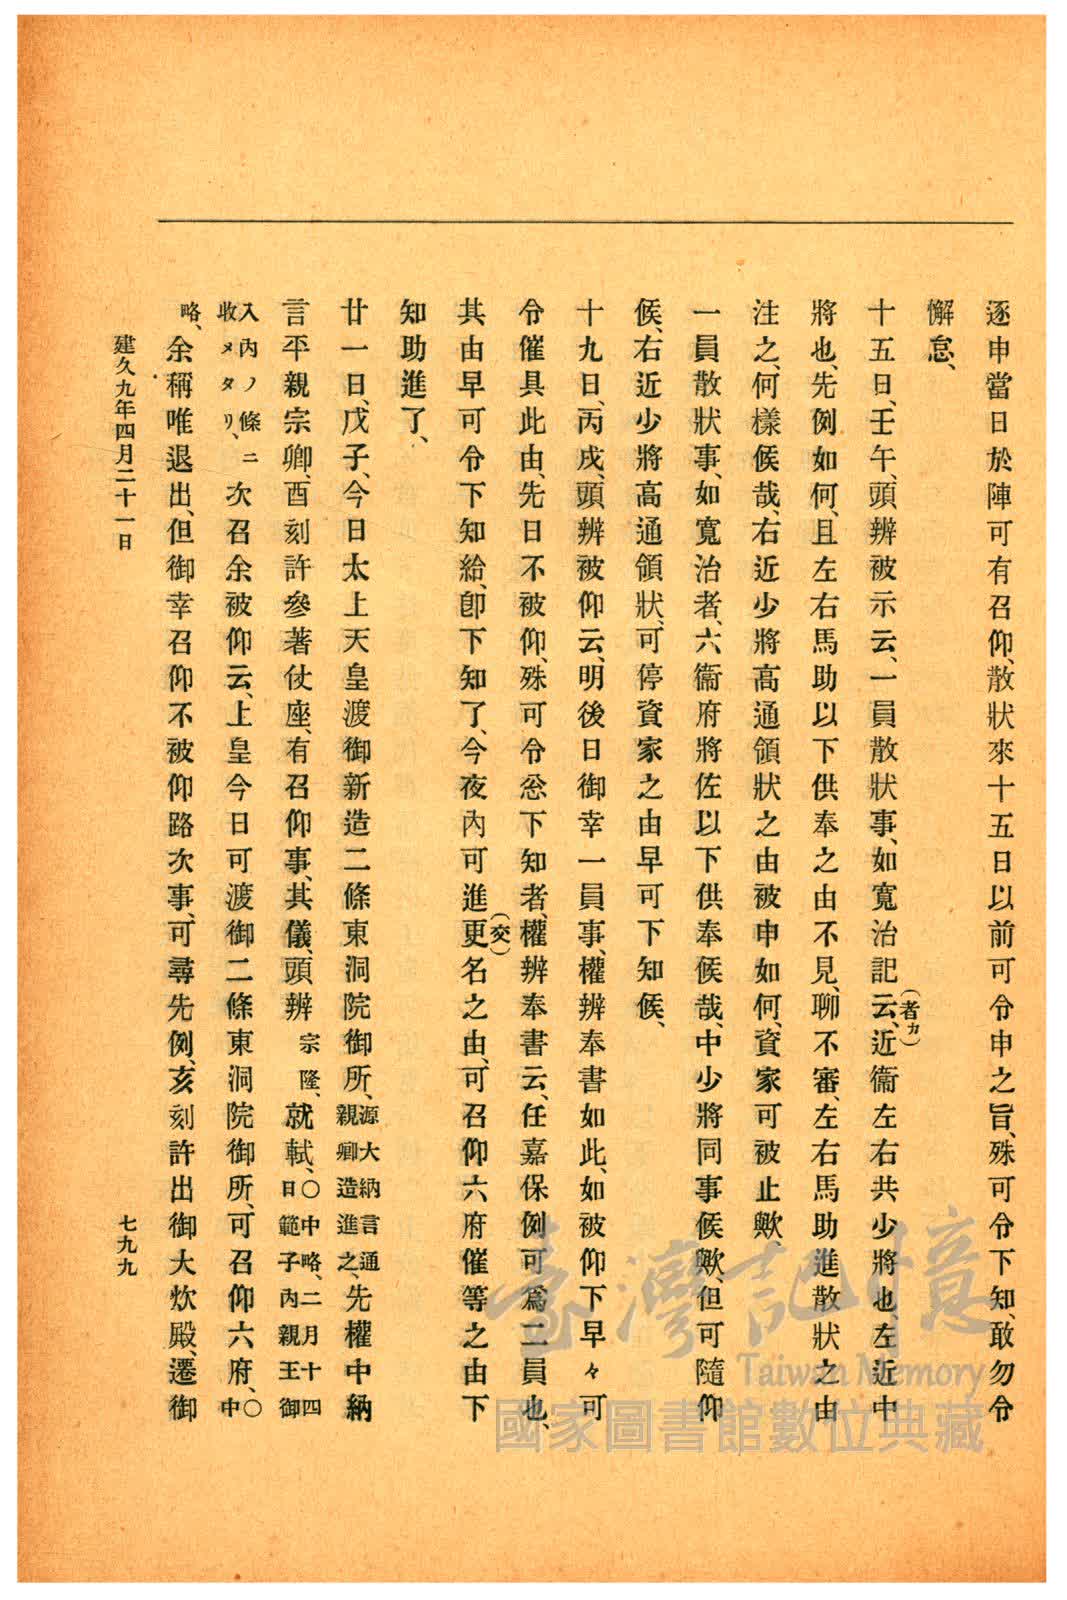 逐申當日於陣可有召仰、散狀來十五日以前可令申之旨、殊可令下知、敢勿令
懈怠、
十五日、壬午、頭辨被示云、一員散狀事、如寬治記云(者カ)、近衞左右共少將也、左近中
將也、先例如何、且左右馬助以下供奉之由不見、聊不審、左右馬助進散狀之由
注之、何樣候哉、右近少將高通領狀之由被申如何、資家可被止歟、
一員散狀事、如寬治者、六衞府將佐以下供奉候哉、中少將同事候歟、但可隨仰
候、右近少將高通領狀、可停資家之由早可下知候、
十九日、丙戌、頭辨被仰云、明後日御幸一員事、權辨奉書如此、如被仰下早々可
令催具此由、先日不被仰、殊可令忩下知者、權辨奉書云、任嘉保例可爲二員也、
其由早可令下知給、卽下知了、今夜內可進更(交)名之由、可召仰六府催等之由下
知助進了、
廿一日、戊子、今日太上天皇渡御新造二條東洞院御所、源大納言通親卿造進之、先權中納
言平親宗卿、酉刻許參著仗座、有召仰事、其儀、頭辨宗隆、就軾、〇中略、二月十四日範子內親王御
入內ノ條ニ收メタリ、次召余被仰云、上皇今日可渡御二條東洞院御所、可召仰六府、〇中
略、余稱唯退出、但御幸召仰不被仰路次事、可尋先例、亥刻許出御大炊殿、遷御
建久九年四月二十一日
七九九
臺灣記憶
Taiwan Memory
國家圖書館數位典藏